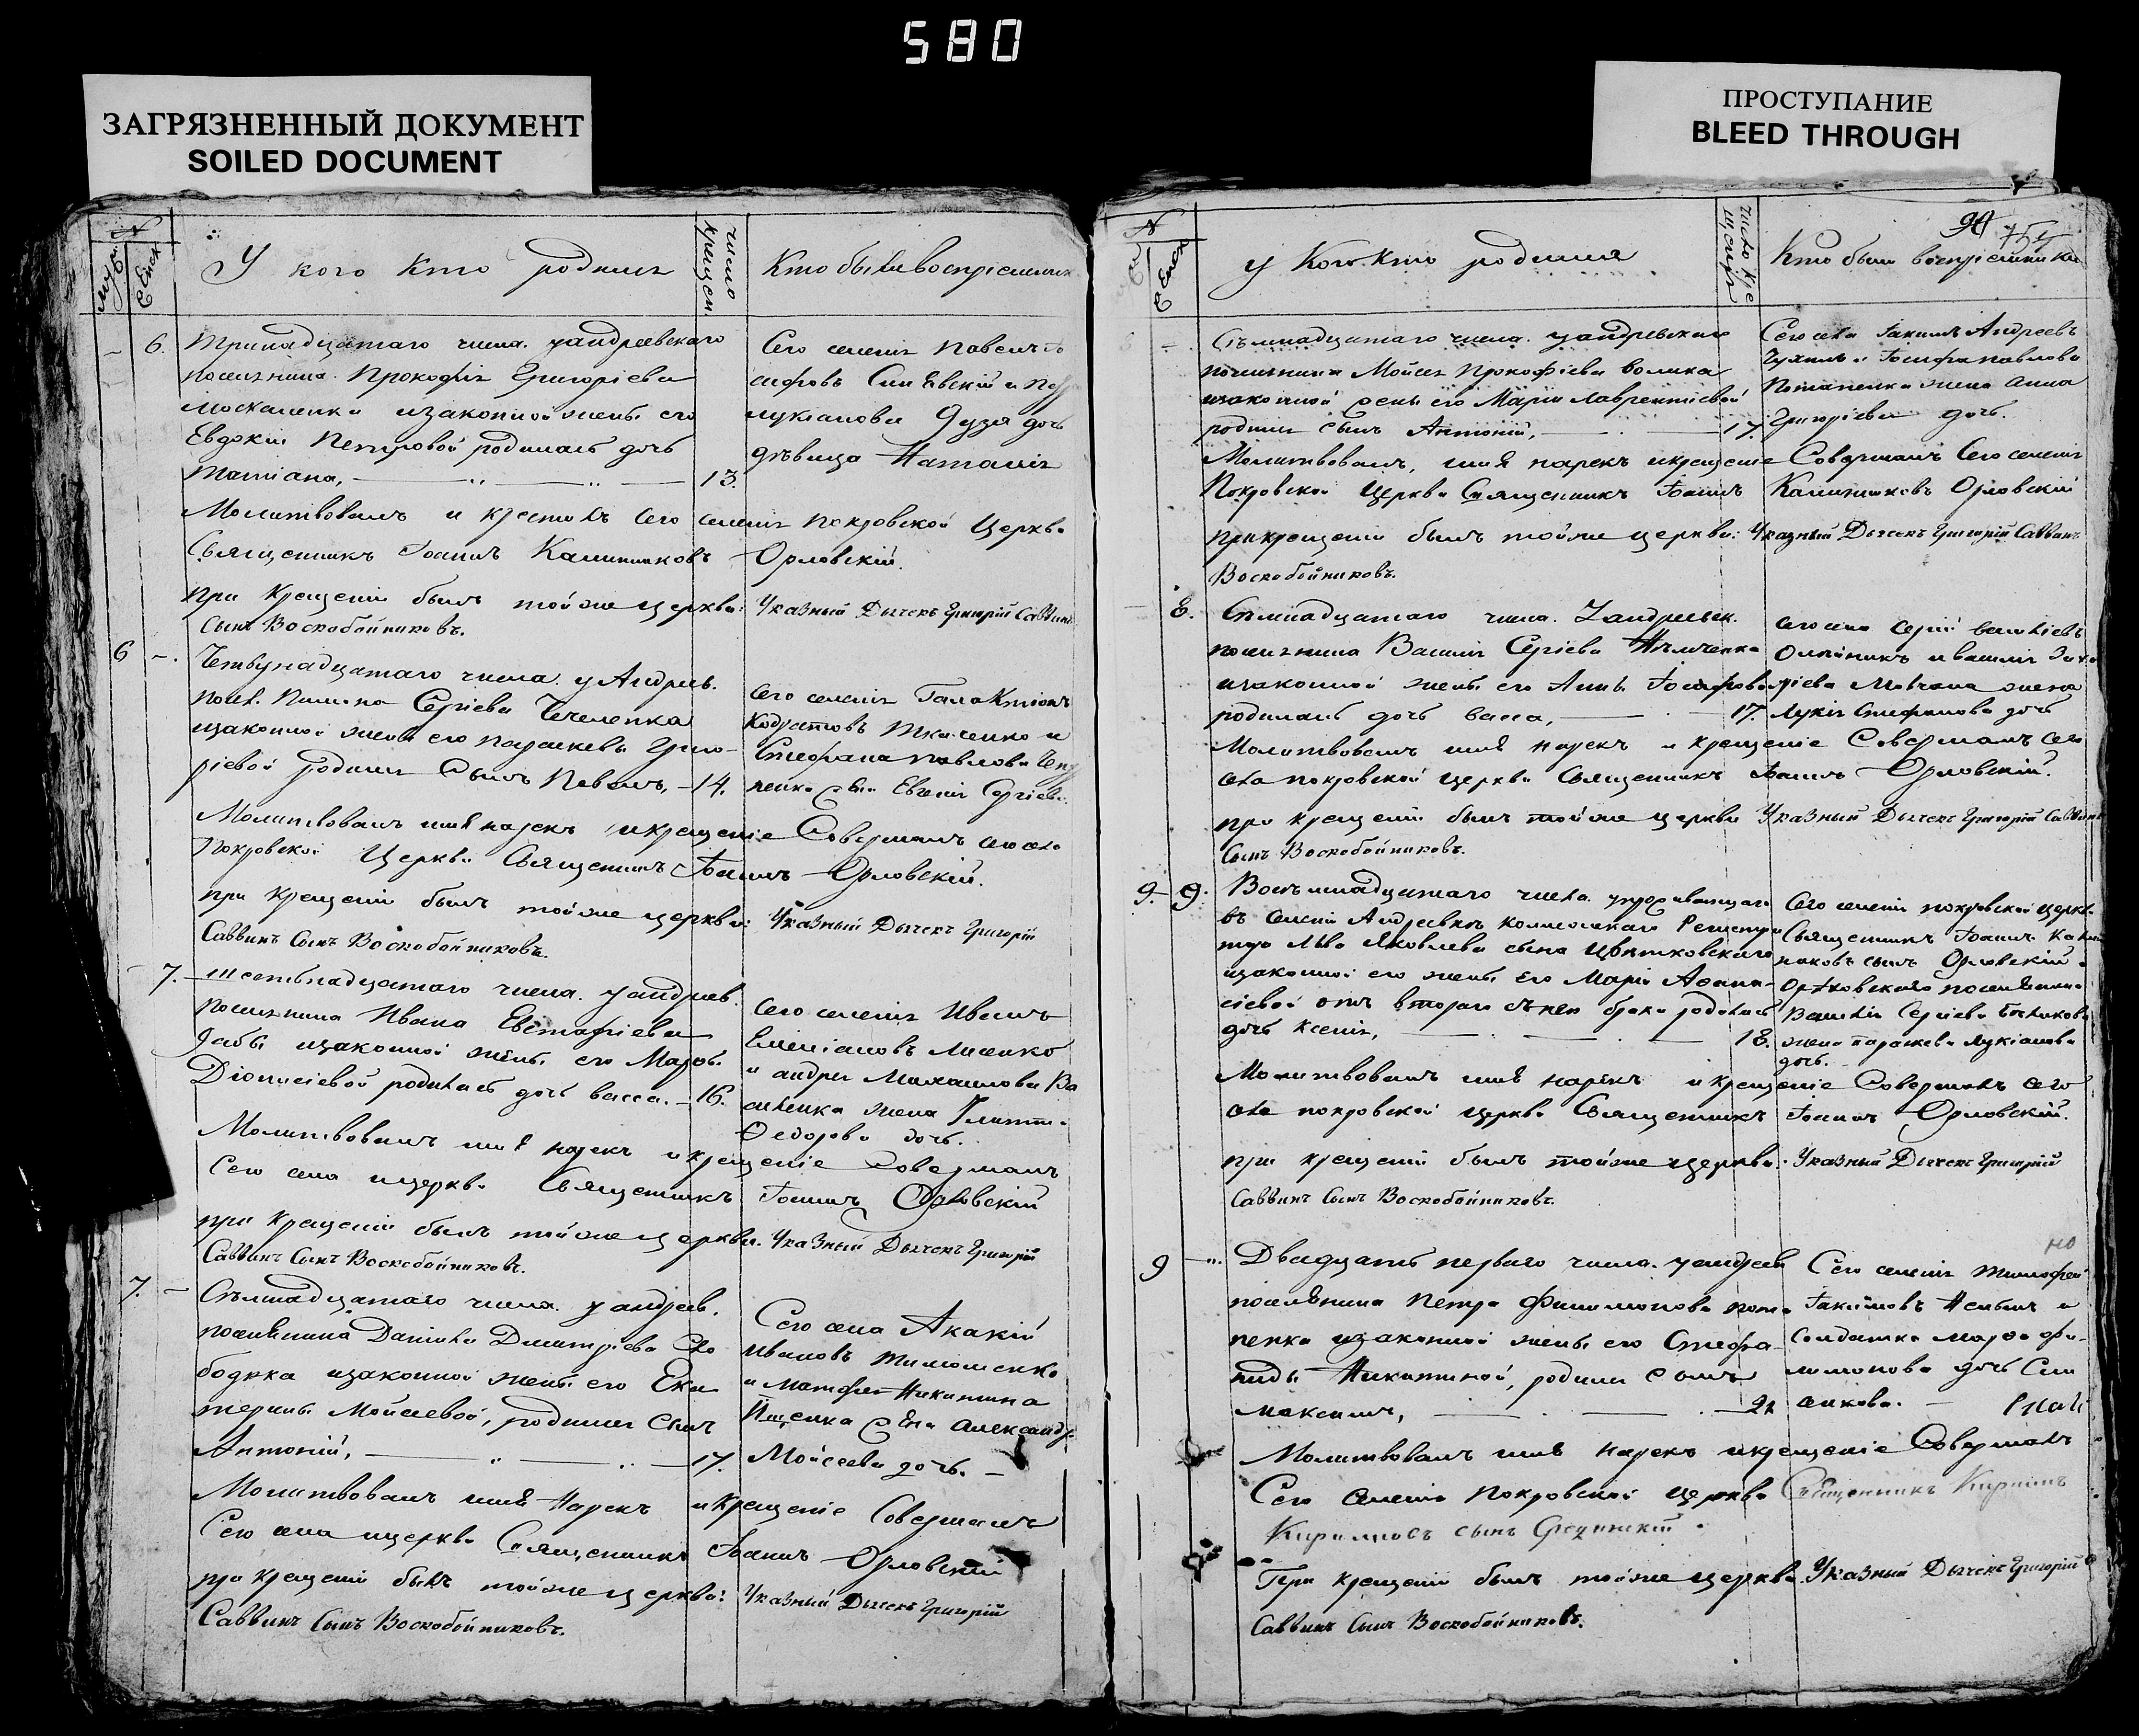 580
ЗАГРЯЗНЕННЫЙ ДОКУМЕНТ
SOILED DOCUMENT
ПРОСТУПАНИЕ
BLEED THROUGH
У кого кто родился
число крещен
Кто были воспрiемники
6. Тринадцатаго числа у андреевскаго
поселянина Прокофiя Григорiева
Москаленка и законной жены его
Евдокiи Петровой родилась дочь
Татiана, 13.
Сего селенiя Павелъ
сифовъ
лукiанова дочь
дѣвица Наталiя
Молитвовалъ и крестилъ сего селенiя покровской Церкви
Священникъ Iоаннъ Калинниковъ Орловскiй.
при крещенiи былъ той же церкви: Указный Дьячекъ Григорiй Саввинъ
Сынъ Воскобойниковъ.
6 Четырнадцатаго числа у Андреев.
посел. Сергiева
изаконной жены его параскевы Григо-
рiевой родился Сынъ Павелъ, 14.
Сего селенiя Галактiонъ
Кодратовъ Ткаченко и
Стефана павлова
Евгенiя Сергiева
Молитвовалъ имя нарекъ и крещенiе Совершалъ сего села
Покровской Церкви Священникъ Iоаннъ Орловскiй.
при крещенiи былъ той же церкви: Указный Дьячекъ Григорiй
Саввинъ Сынъ Воскобойниковъ.
7. шестьнадцатаго числа у андреев.
поселянина Ивана Евстафiева
изаконной жены его Марфы
Дiонисiевой родилась дочь васса. 16.
Сего селенiя Иванъ
Емелiановъ Лисенко
и андрея Михаилова Ва
силенка жена
Федорова дочь.
Молитвовалъ имя нарекъ и крещенiе Совершалъ
Сего села и церкви Священникъ Iоаннъ Орловскiй
при крещенiи былъ той же церкви. Указный Дьячекъ Григорiй
Саввинъ Сынъ Воскобойниковъ.
7. Сѣмнадцатаго числа у андреев.
поселянина Данiила Димитрiева Сло
бодяка изаконной жены его Ека
терины Мойсеевой, родился Сынъ
Антонiй, 17.
Сего села Акакiй
Ивановъ Тимошенко
и Матфея Никитина
Ищенка жена александра
Мойсеева дочь.
Молитвовалъ имя Нарекъ и Крещенiе Совершалъ
Сего села и церкви Священникъ Iоаннъ Орловскiй
при крещенiи былъ той же церкви: Указный Дьячекъ Григорiй
Саввинъ Сынъ Воскобойниковъ.
У Кого кто родился
число кре
Кто были воспрiемники
Сѣмнадцатаго числа у андреевскаго
поселянина Мойсея Прокофiева волика
изаконной жены его Марiи Лаврентiевой
родился Сынъ Антонiй, 17.
Сего села Iакимъ Андреевъ
и Iосифа павлова
Потапенка жена Анна
Григорiева дочь.
Молитвовалъ, имя нарекъ и крещенiе Совершалъ Сего селенiя
Покровской Церкви Священникъ Iоаннъ Калинниковъ Орловскiй
при крещенiи былъ той же церкви: Указный Дьячекъ Григорiй Саввинъ
Воскобойниковъ.
8. Сѣмнадцатаго числа У андреевск.
поселянина Василiя Сергiева Нѣмченка
изаконной жены его Анны Iосифовой
родилась дочь васса, 17.
сего села Сергiй васильевъ
Олейникъ и василiя Заха
рiева Мовчана жена
Лукiя Стефанова дочь
Молитвовалъ имя нарекъ и крещенiе Совершалъ сего
села покровской церкви Священникъ Iоаннъ Орловскiй.
при крещенiи былъ той же церкви Указный Дьячекъ Григорiй Саввинъ
Сынъ Воскобойниковъ.
9. 9. Восьмнадцатаго числа у проживающаго
въ селенiи Андреевкѣ коллежскаго Регистра
тора Льва Яковлева сына Цвѣтковскаго
изаконной его жены его Марiи Афана-
сiевой отъ втораго съ нею брака родилась
дочь Ксенiя, 18.
Сего селенiя покровской церкви
Священникъ Iоаннъ Калин
никовъ сынъ Орловскiй.
поселянина
Василiя Сергiева
жена параскева Лукiанова
дочь.
Молитвовалъ имя нарекъ и крещенiе Совершалъ сего
села покровской церкви Священникъ Iоаннъ Орловскiй.
при крещенiи былъ той же церкви. Указный Дьячекъ Григорiй
Саввинъ Сынъ Воскобойниковъ.
9 Двадцать перваго числа у андреев
поселянина Петра Филимонова пота
пенка изаконной жены его Стефа-
ниды Никитиной, родился Сынъ
Максимъ, 21
Сего селенiя Тимофей
Iакимовъ и
Солдатка Марфа фи-
лимонова дочь
Молитвовалъ имя нарекъ и крещенiе Совершалъ
Сего Селенiя Покровской церкви Священникъ Кирилъ
Кириловъ сынъ
При крещенiи былъ той же церкви. Указный Дьячекъ Григорiй
Саввинъ Сынъ Воскобойниковъ.